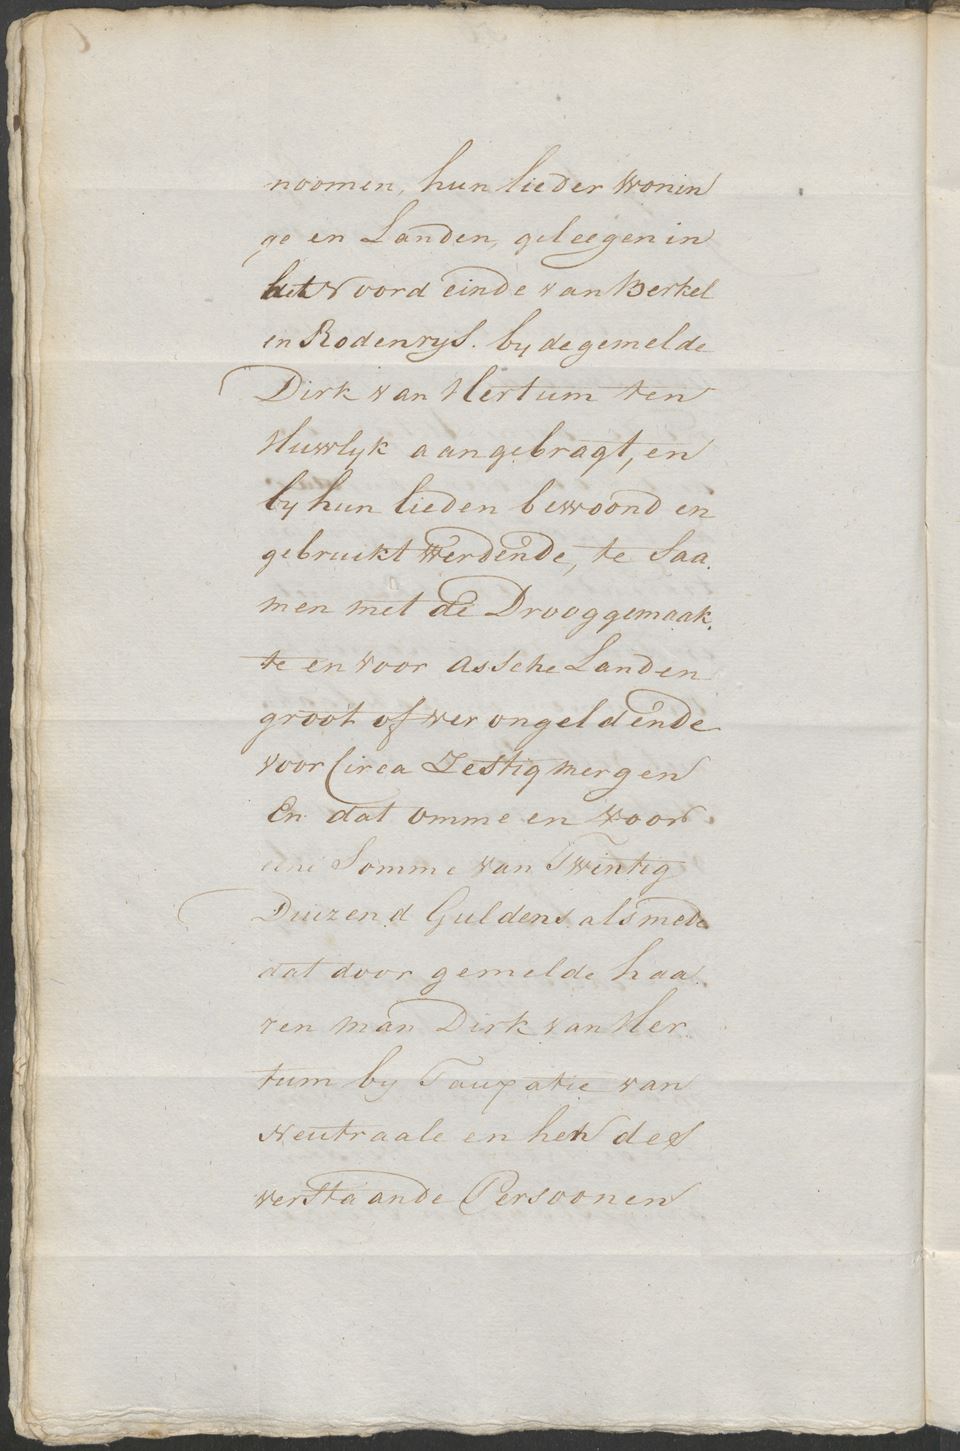 noomen, hun lieder Wonin
ge en Landen, geleegen in
het Noord einde van Berkel
en Rodenrys. by de gemelde
Dirk van Hertum ten
Huwlyk aangebragt, en
by hun lieden bewoond en
gebruikt werdende, te Saa.
men met de Drooggemaak.
te en voor Assche Landen
groot of verongeldende
voor Circa Zestig mergen
En dat omme en voor
eene Somme van Twintig
Duizend Guldens. als mede
dat door gemelde haa.
ren man Dirk van Her.
tum by Tauxatie van
Neutraale en hen des
verstaande Persoonen